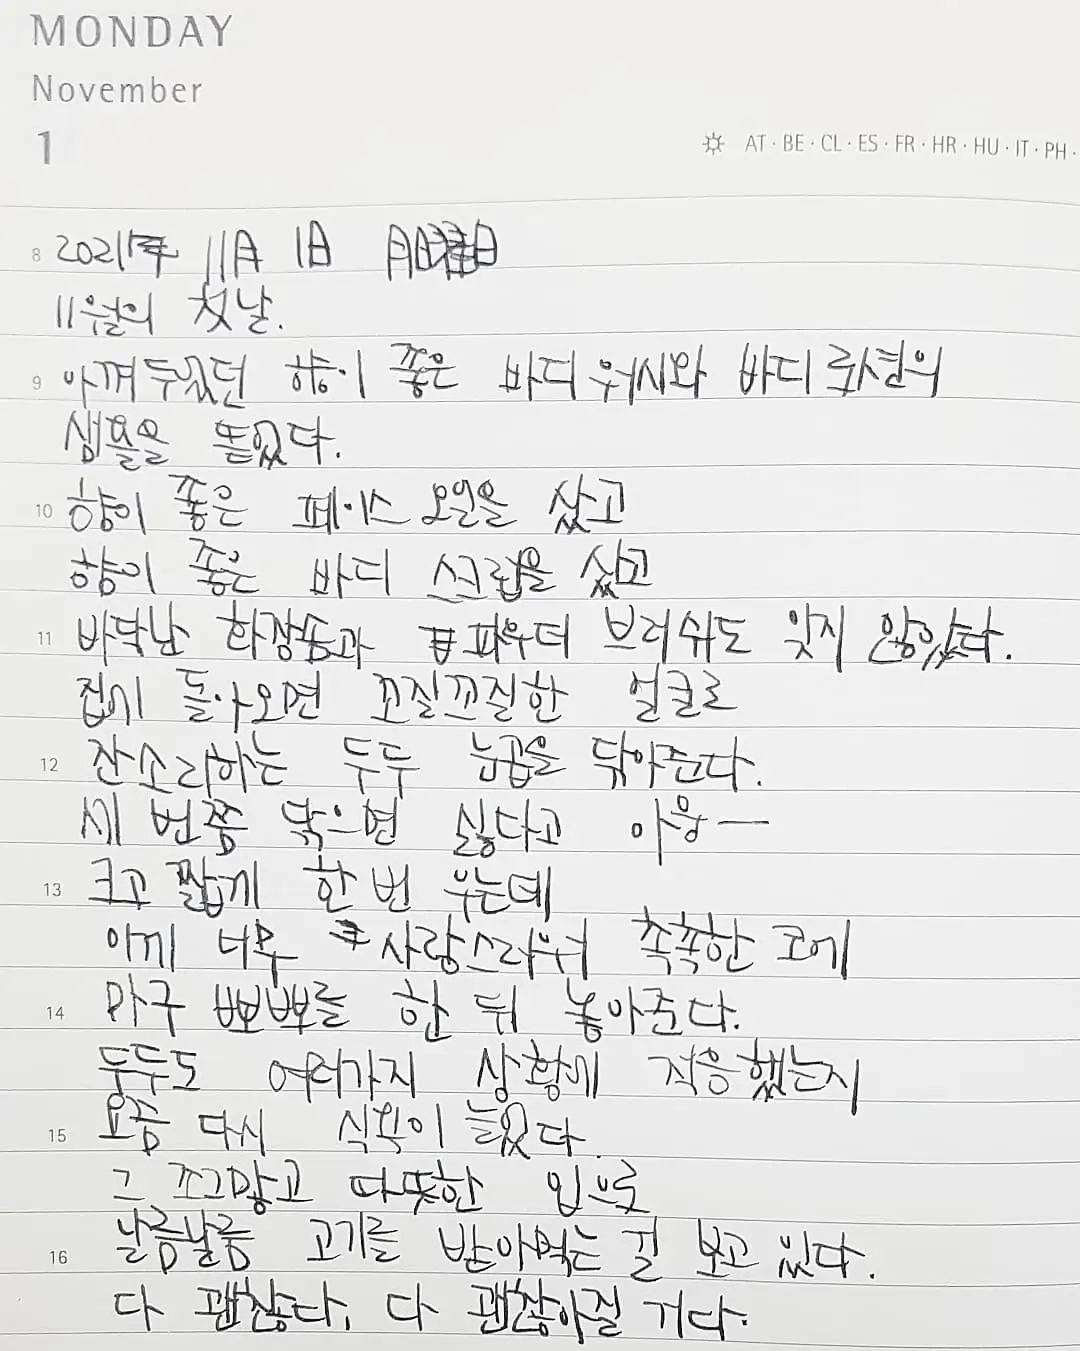 MONDAY
November
1
AT · BE · CL · ES · FR · HR · HU · IT · PH ·
8 2021年 11月 1日 月曜日
11월의 첫날.
9 아껴두었던 향이 좋은 바디워시와 바디로션의
샘플을 뜯었다.
10 향이 좋은 페이스오일을 샀고
향이 좋은 바디 스크럽을 샀고
11 바닥난 화장솜과 파우더 브러쉬도 잊지 않았다.
집에 돌아오면 꼬질꼬질한 얼굴로
12 잔소리하는 두두 눈곱을 닦아준다.
세 번쯤 닦으면 싫다고 아웅—
13 크고 짧게 한 번 우는데
아끼 너무 사랑스러워 촉촉한 코에
14 마구 뽀뽀를 한 뒤 놓아준다.
두두도 여러가지 상황에 적응했는지
15 요즘 다시 식욕이 늘었다.
그 쪼그맣고 따뜻한 입으로
16 날름날름 고기를 받아먹는 걸 보고 있다.
다 괜찮다, 다 괜찮아질 거다.